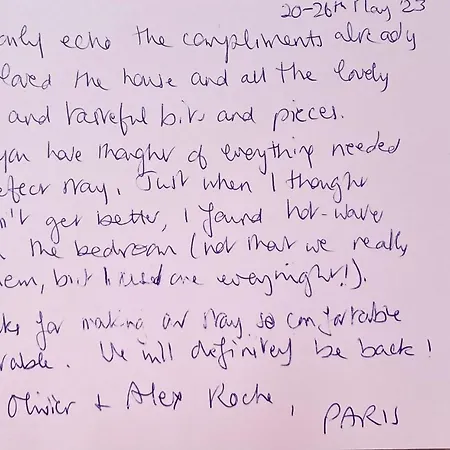 20-26th May '23
only echo the compliments already
loved the house and all the lovely
and tasteful bits and pieces.
you have thought of everything needed
stay. Just when I thought
n't get better, I found hot-wave
the bedroom (not that we really
hem, but I used one every night!).
for making our stay so comfortable
rable. We will definitely be back!
Olivier + Alex Roche, PARIS